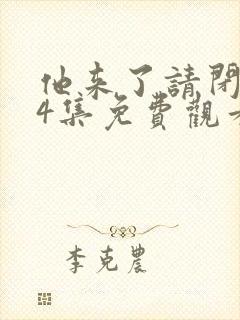 他来了請閉
4集免費觀看
李克農